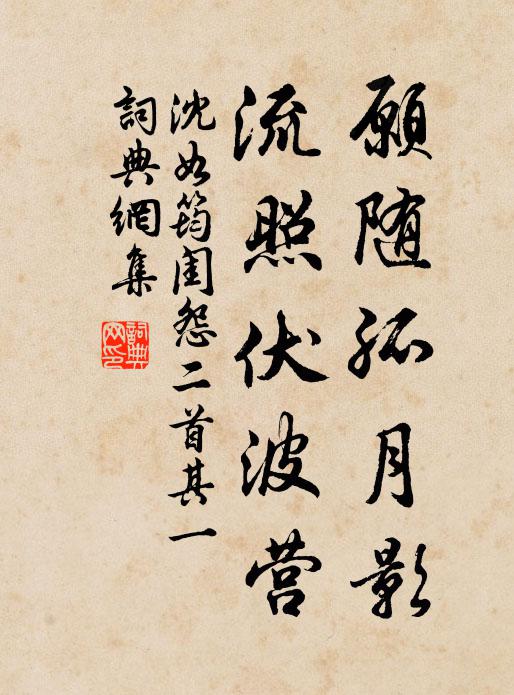 願随孤月影
流照伏波营
沈如筠闺怨二首其一
詞典網集
詞典
网印